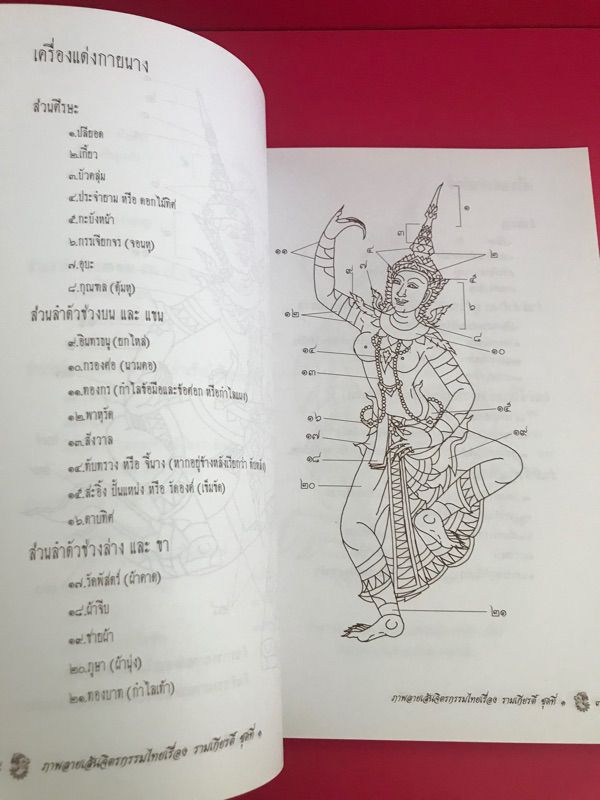 เครื่องแต่งกายนาง
ส่วนศีรษะ
๑.ปลียอด
๒.เกี้ยว
๓.บัวคลุ่ม
๔.ประจำยาม หรือ ดอกไม้ทิศ
๕.กะบังหน้า
๖.กรรเจียกจร (จอนหู)
๗.อุบะ
๘.กุณฑล (ตุ้มหู)
ส่วนลำตัวช่วงบน และ แขน
๙.อินทรธนู (ยกไหล่)
๑๐.กรองศอ (นวมคอ)
๑๑.ทองกร (กำไลข้อมือและข้อศอก หรือกำไลแผง)
๑๒.พาหุรัด
๑๓.สังวาล
๑๔.ทับทรวง หรือ จี้นาง (หากอยู่ข้างหลังเรียกว่า
๑๕.สะอิ้ง ปั้นเหน่ง หรือ รัดองค์ (เข็มขัด)
๑๖.ตาบทิศ
ส่วนลำตัวช่วงล่าง และ ขา
๑๗.รัดพัสตร์ (ผ้าคาด)
๑๘.ผ้าจีบ
๑๙.ชายผ้า
๒๐.ภูษา (ผ้านุ่ง)
๒๑.ทองบาท (กำไลเท้า)
ภาพลายเส้นจิตรกรรมไทยเรื่อง รามเกียรติ์ ชุดที่ ๑
๑
๑๑
๒
๑๒
๑๐
๑๔
๑๓
๑๖
๑๕
๑๗
๑๙
๑๘
๒๐
๒๑
ภาพลายเส้นจิตรกรรมไทยเรื่อง รามเกียรติ์ ชุดที่ ๑